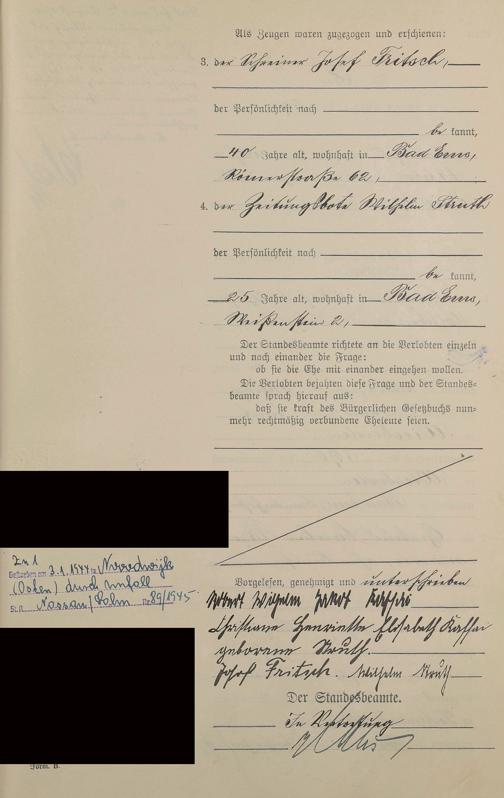 Als Zeugen waren zugezogen und erschienen:
3. der Schreiner Josef Fritsch,
der Persönlichkeit nach
be kannt,
40 Jahre alt, wohnhaft in Bad Ems,
Römerstraße 62,
4. der Zeitungsbote Wilhelm Struth
der Persönlichkeit nach
be kannt,
25 Jahre alt, wohnhaft in Bad Ems,
Weißenstein 2,
Der Standesbeamte richtete an die Verlobten einzeln
und nach einander die Frage:
ob sie die Ehe mit einander eingehen wollen.
Die Verlobten bejahten diese Frage und der Standes-
beamte sprach hierauf aus:
daß sie kraft des Bürgerlichen Gesetzbuchs nun-
mehr rechtmäßig verbundene Eheleute seien.
Zu 1
Gestorben am 3.1.1944 in
(Osten) durch Unfall
St.A. Nassau/Lahn Nr. 89/1945
Vorgelesen, genehmigt und unterschrieben
Robert Wilhelm Jakob
Christiane Henriette Elisabeth
geborene Struth.
Josef Fritsch. Wilhelm Struth
Der Standesbeamte.
In Vertretung
Form. B.